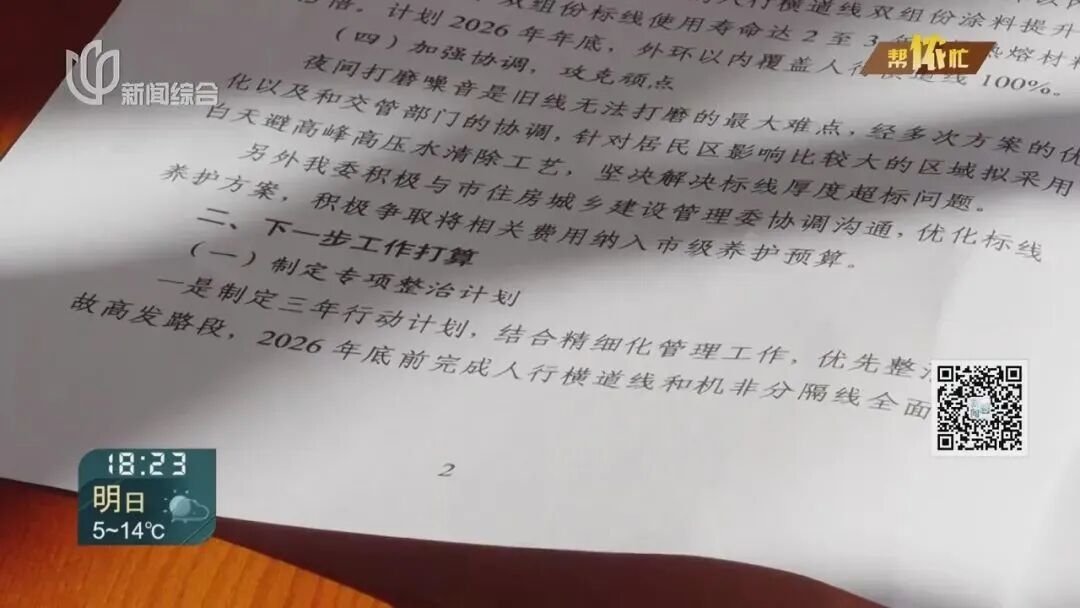 人行横道线双组份涂料提升
双组份标线使用寿命达2至3 热熔材料
计划2026年年底，外环以内覆盖人行横道线100%。
（四）加强协调，攻克顽点
夜间打磨噪音是旧线无法打磨的最大难点，经多次方案的优
化以及和交管部门的协调，针对居民区影响比较大的区域拟采用
白天避高峰高压水清除工艺，坚决解决标线厚度超标问题。
另外我委积极与市住房城乡建设管理委协调沟通，优化标线
养护方案，积极争取将相关费用纳入市级养护预算。
二、下一步工作打算
（一）制定专项整治计划
一是制定三年行动计划，结合精细化管理工作，优先整
故高发路段，2026年底前完成人行横道线和机非分隔线全面
2
新闻综合
帮侬忙
18:23
明日
5~14℃